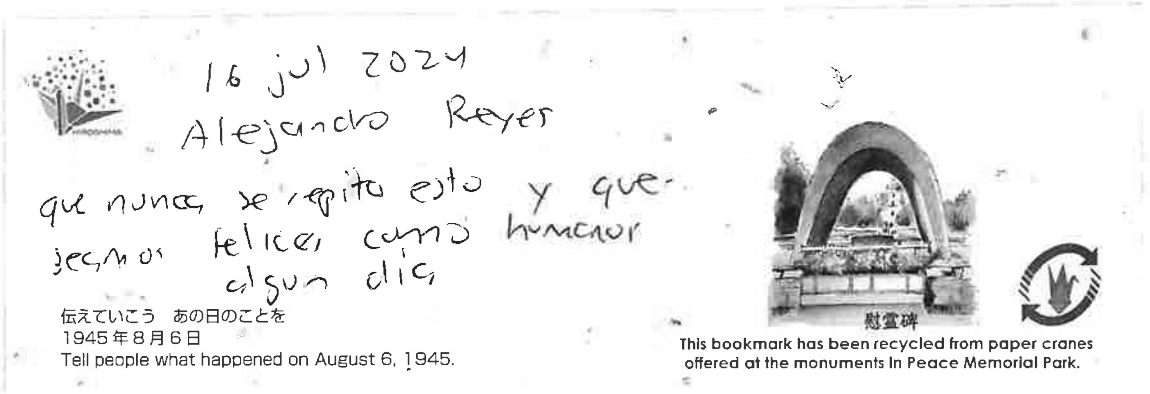 HIROSHIMA
16 jul 2024
Alejandro Reyes
que nunca se repita esto y que
seamos felices como humanos
algun dia
伝えていこう　あの日のことを
1945年8月6日
Tell people what happened on August 6, 1945.
慰霊碑
This bookmark has been recycled from paper cranes
offered at the monuments in Peace Memorial Park.